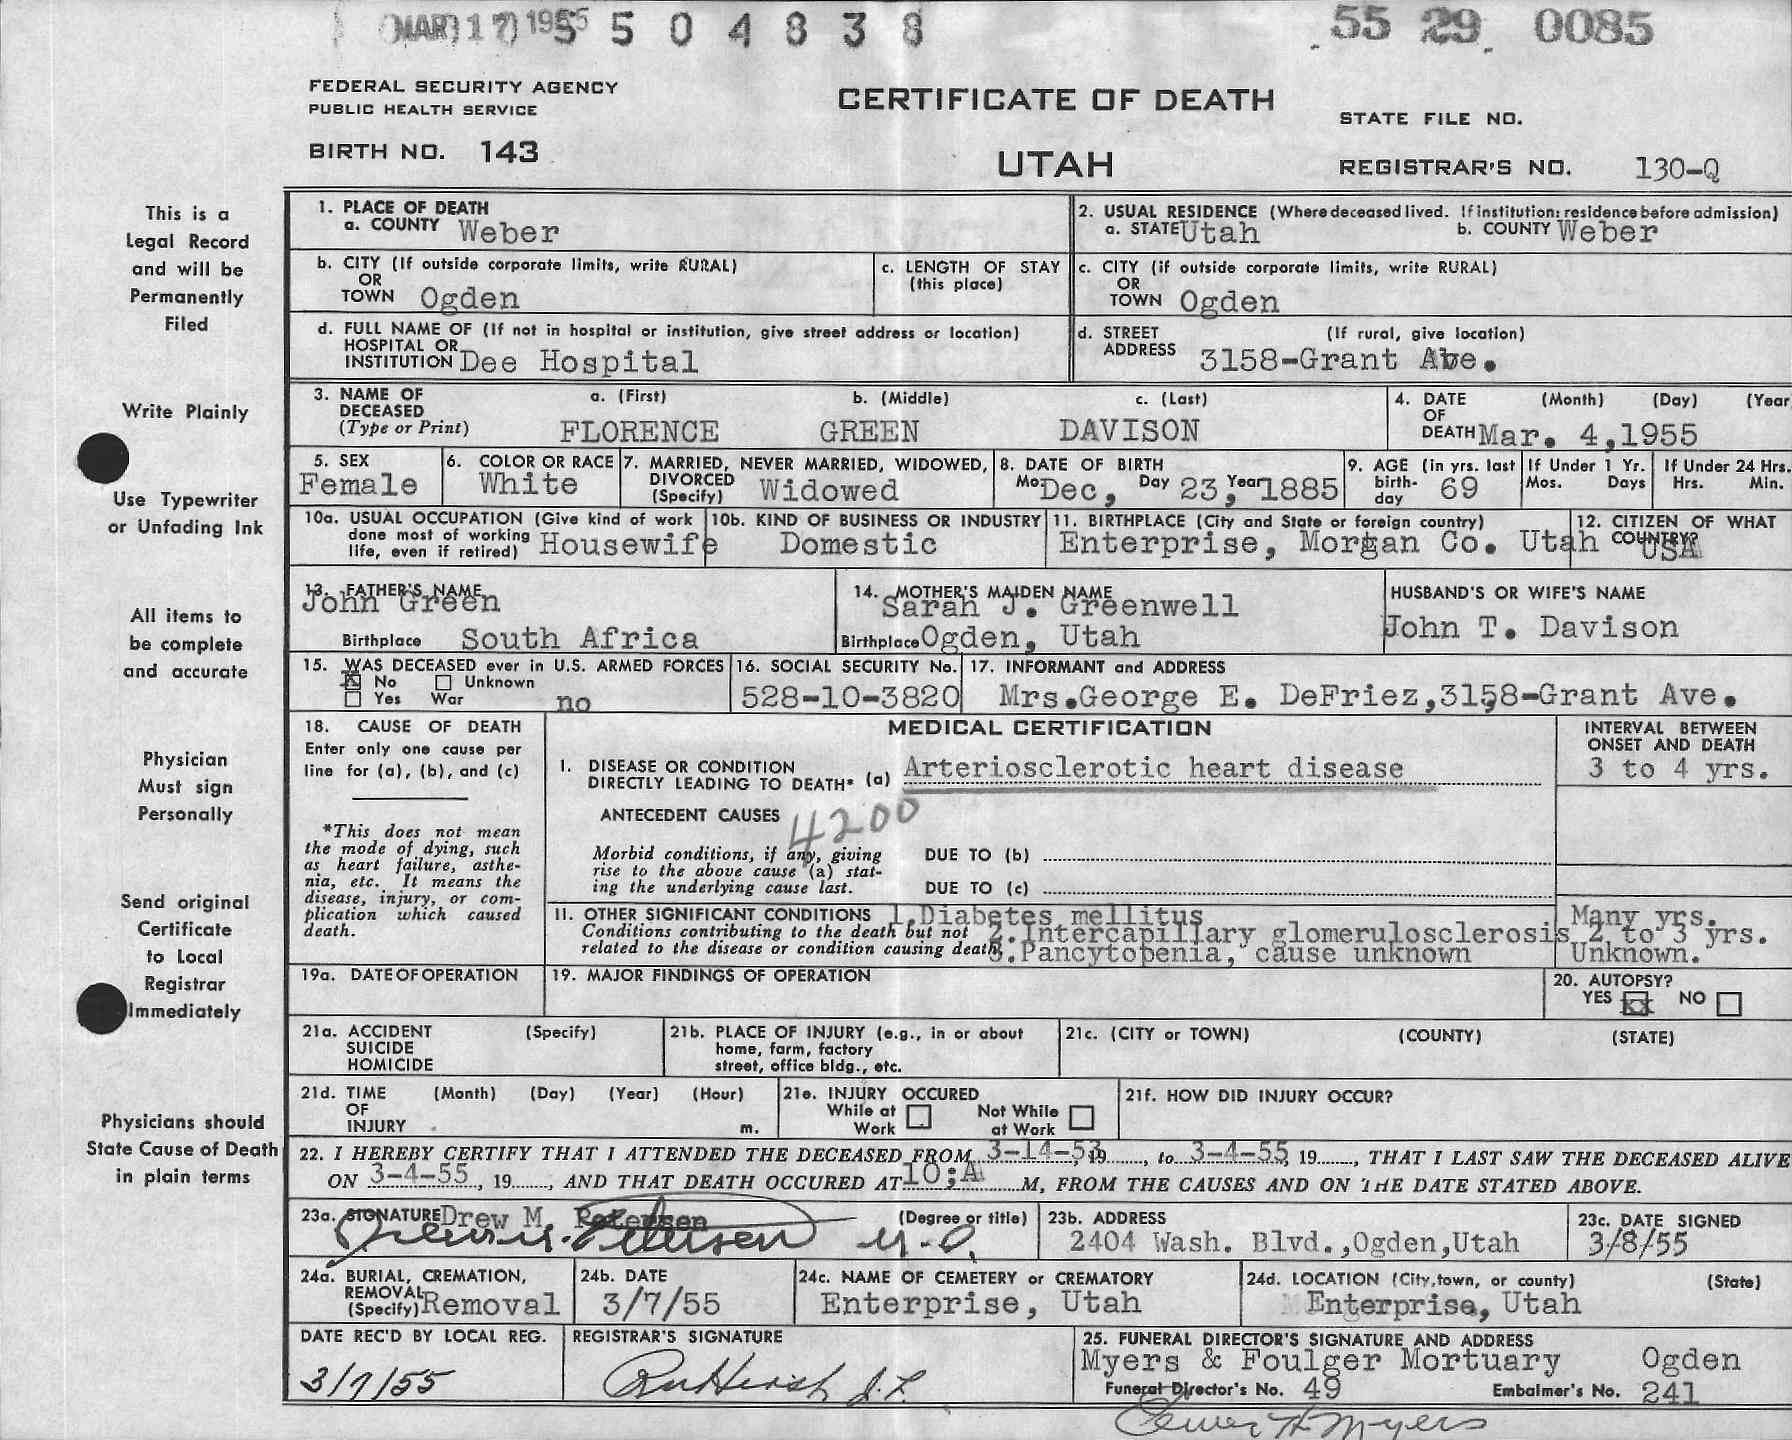 MAR 17 1955 5 5 0 4 8 3 8
55 29 0085
FEDERAL SECURITY AGENCY
PUBLIC HEALTH SERVICE
BIRTH NO. 143
CERTIFICATE OF DEATH
UTAH
STATE FILE NO.
REGISTRAR'S NO. 130-Q
This is a
Legal Record
and will be
Permanently
Filed
Write Plainly
Use Typewriter
or Unfading Ink
All items to
be complete
and accurate
Physician
Must sign
Personally
Send original
Certificate
to Local
Registrar
Immediately
Physicians should
State Cause of Death
in plain terms
1. PLACE OF DEATH
a. COUNTY Weber
2. USUAL RESIDENCE (Where deceased lived. If institution: residence before admission)
a. STATE Utah b. COUNTY Weber
b. CITY (If outside corporate limits, write RURAL)
OR
TOWN Ogden
c. LENGTH OF STAY
(this place)
c. CITY (if outside corporate limits, write RURAL)
OR
TOWN Ogden
d. FULL NAME OF (If not in hospital or institution, give street address or location)
HOSPITAL OR
INSTITUTION Dee Hospital
d. STREET (If rural, give location)
ADDRESS 3158-Grant Ave.
3. NAME OF a. (First) b. (Middle) c. (Last)
DECEASED
(Type or Print) FLORENCE GREEN DAVISON
4. DATE (Month) (Day) (Year
OF
DEATH Mar. 4,1955
5. SEX
Female
6. COLOR OR RACE
White
7. MARRIED, NEVER MARRIED, WIDOWED,
DIVORCED
(Specify) Widowed
8. DATE OF BIRTH
Mo Dec, Day 23, Year 1885
9. AGE (in yrs. last
birth-
day 69
If Under 1 Yr.
Mos. Days
If Under 24 Hrs.
Hrs. Min.
10a. USUAL OCCUPATION (Give kind of work
done most of working
life, even if retired) Housewife
10b. KIND OF BUSINESS OR INDUSTRY
Domestic
11. BIRTHPLACE (City and State or foreign country)
Enterprise, Morgan Co. Utah
12. CITIZEN OF WHAT
COUNTRY?
USA
13. FATHER'S NAME
John Green
Birthplace South Africa
14. MOTHER'S MAIDEN NAME
Sarah J. Greenwell
Birthplace Ogden, Utah
HUSBAND'S OR WIFE'S NAME
John T. Davison
15. WAS DECEASED ever in U.S. ARMED FORCES
X No Unknown
Yes War no
16. SOCIAL SECURITY No.
528-10-3820
17. INFORMANT and ADDRESS
Mrs.George E. DeFriez,3158-Grant Ave.
18. CAUSE OF DEATH
Enter only one cause per
line for (a), (b), and (c)
*This does not mean
the mode of dying, such
as heart failure, asthe-
nia, etc. It means the
disease, injury, or com-
plication which caused
death.
MEDICAL CERTIFICATION
INTERVAL BETWEEN
ONSET AND DEATH
I. DISEASE OR CONDITION
DIRECTLY LEADING TO DEATH* (a) Arteriosclerotic heart disease 3 to 4 yrs.
ANTECEDENT CAUSES
4200
Morbid conditions, if any, giving
rise to the above cause (a) stat-
ing the underlying cause last.
DUE TO (b)
DUE TO (c)
II. OTHER SIGNIFICANT CONDITIONS 1.Diabetes mellitus Many yrs.
Conditions contributing to the death but not 2.Intercapillary glomerulosclerosis 2 to 3 yrs.
related to the disease or condition causing death. 3.Pancytopenia, cause unknown Unknown.
19a. DATE OF OPERATION
19. MAJOR FINDINGS OF OPERATION
20. AUTOPSY?
YES XX NO
21a. ACCIDENT (Specify)
SUICIDE
HOMICIDE
21b. PLACE OF INJURY (e.g., in or about
home, farm, factory
street, office bldg., etc.
21c. (CITY or TOWN) (COUNTY) (STATE)
21d. TIME (Month) (Day) (Year) (Hour)
OF
INJURY m.
21e. INJURY OCCURED
While at Not While
Work at Work
21f. HOW DID INJURY OCCUR?
22. I HEREBY CERTIFY THAT I ATTENDED THE DECEASED FROM 3-14-53, 19......, to 3-4-55, 19......, THAT I LAST SAW THE DECEASED ALIVE
ON 3-4-55, 19......, AND THAT DEATH OCCURED AT 10;A M, FROM THE CAUSES AND ON THE DATE STATED ABOVE.
23a. SIGNATURE Drew M. Petersen (Degree or title)
Drew M. Petersen M.D.
23b. ADDRESS
2404 Wash. Blvd.,Ogden,Utah
23c. DATE SIGNED
3/8/55
24a. BURIAL, CREMATION,
REMOVAL
(Specify) Removal
24b. DATE
3/7/55
24c. NAME OF CEMETERY or CREMATORY
Enterprise, Utah
24d. LOCATION (City,town, or county) (State)
Enterprise, Utah
DATE REC'D BY LOCAL REG.
3/7/55
REGISTRAR'S SIGNATURE
25. FUNERAL DIRECTOR'S SIGNATURE AND ADDRESS
Myers & Foulger Mortuary Ogden
Funeral Director's No. 49 Embalmer's No. 241
Myers